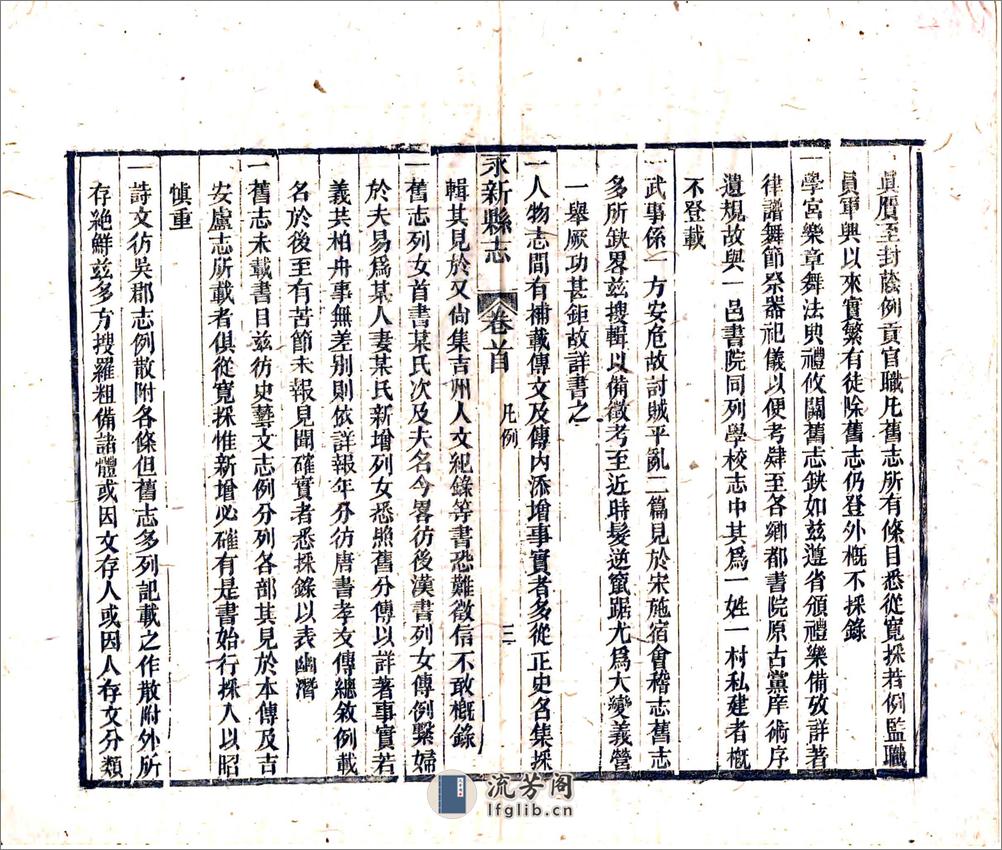 眞贋至封廕例貢官職凡舊志所有條目悉從寬採若例監職
員軍興以來實繁有徒除舊志仍登外槪不採錄
一學宮樂章舞法典禮攸關舊志缺如茲遵省頒禮樂備攷詳著
律譜舞節祭器祀儀以便考肄至各鄉都書院原古黨庠術序
遺規故與一邑書院同列學校志中其爲一姓一村私建者槪
不登載
一武事係一方安危故討賊平亂二篇見於宋施宿會稽志舊志
多所缺畧茲搜輯以備徵考至近時髮逆竄踞尤爲大變義營
一舉厥功甚鉅故詳書之
一人物志間有補載傳文及傳內添增事實者多從正史名集採
永新縣志 卷首 凡例 三
輯其見於又尙集吉州人文紀錄等書恐難徵信不敢槪錄
一舊志列女首書某氏次及夫名今畧仿後漢書列女傳例繫婦
於夫易爲某人妻某氏新增列女悉照舊分傳以詳著事實若
義共柏舟事無差别則依詳報年分仿唐書孝友傳總敘例載
名於後至有苦節未報見聞確實者悉採錄以表幽潛
一舊志未載書目茲仿史藝文志例分列各部其見於本傳及吉
安盧志所載者俱從寬採惟新增必確有是書始行採入以昭
愼重
一詩文仿吳郡志例散附各條但舊志多列記載之作散附外所
存絶鮮茲多方搜羅粗備諸體或因文存人或因人存文分類
流芳阁
lfglib.cn